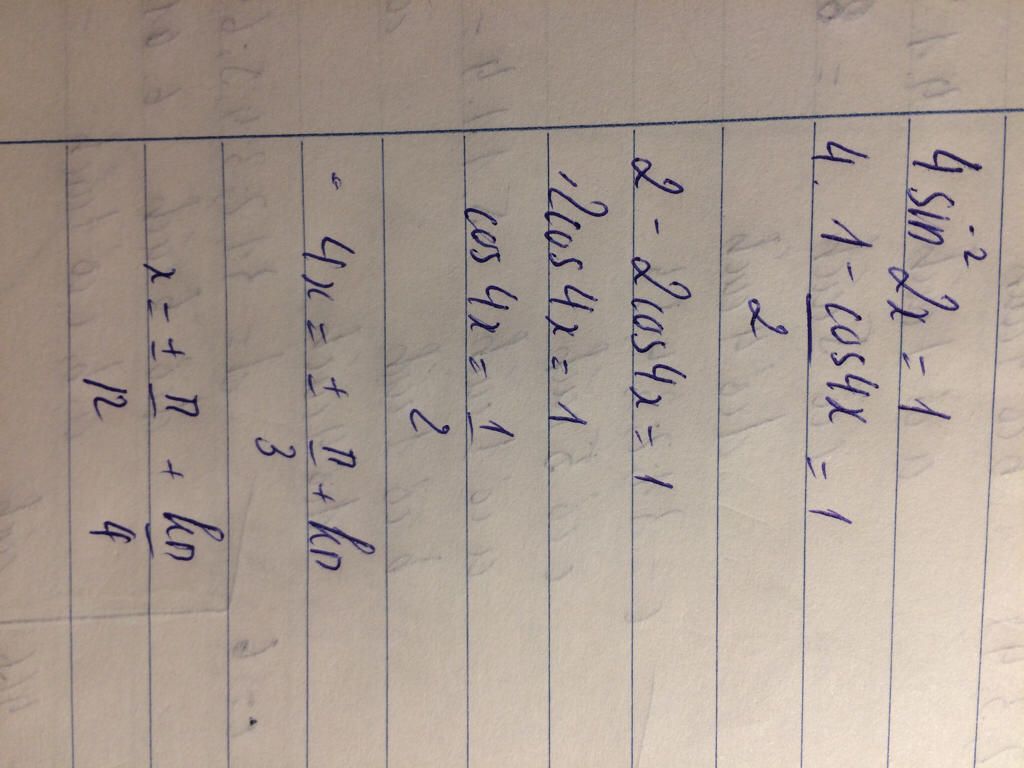 4 sin² 2x = 1
4 · 1 - cos4x = 1
2
2 - 2cos4x = 1
2cos4x = 1
cos4x = 1
2
4x = ± π + kπ
3
x = ± π + kπ
12 4